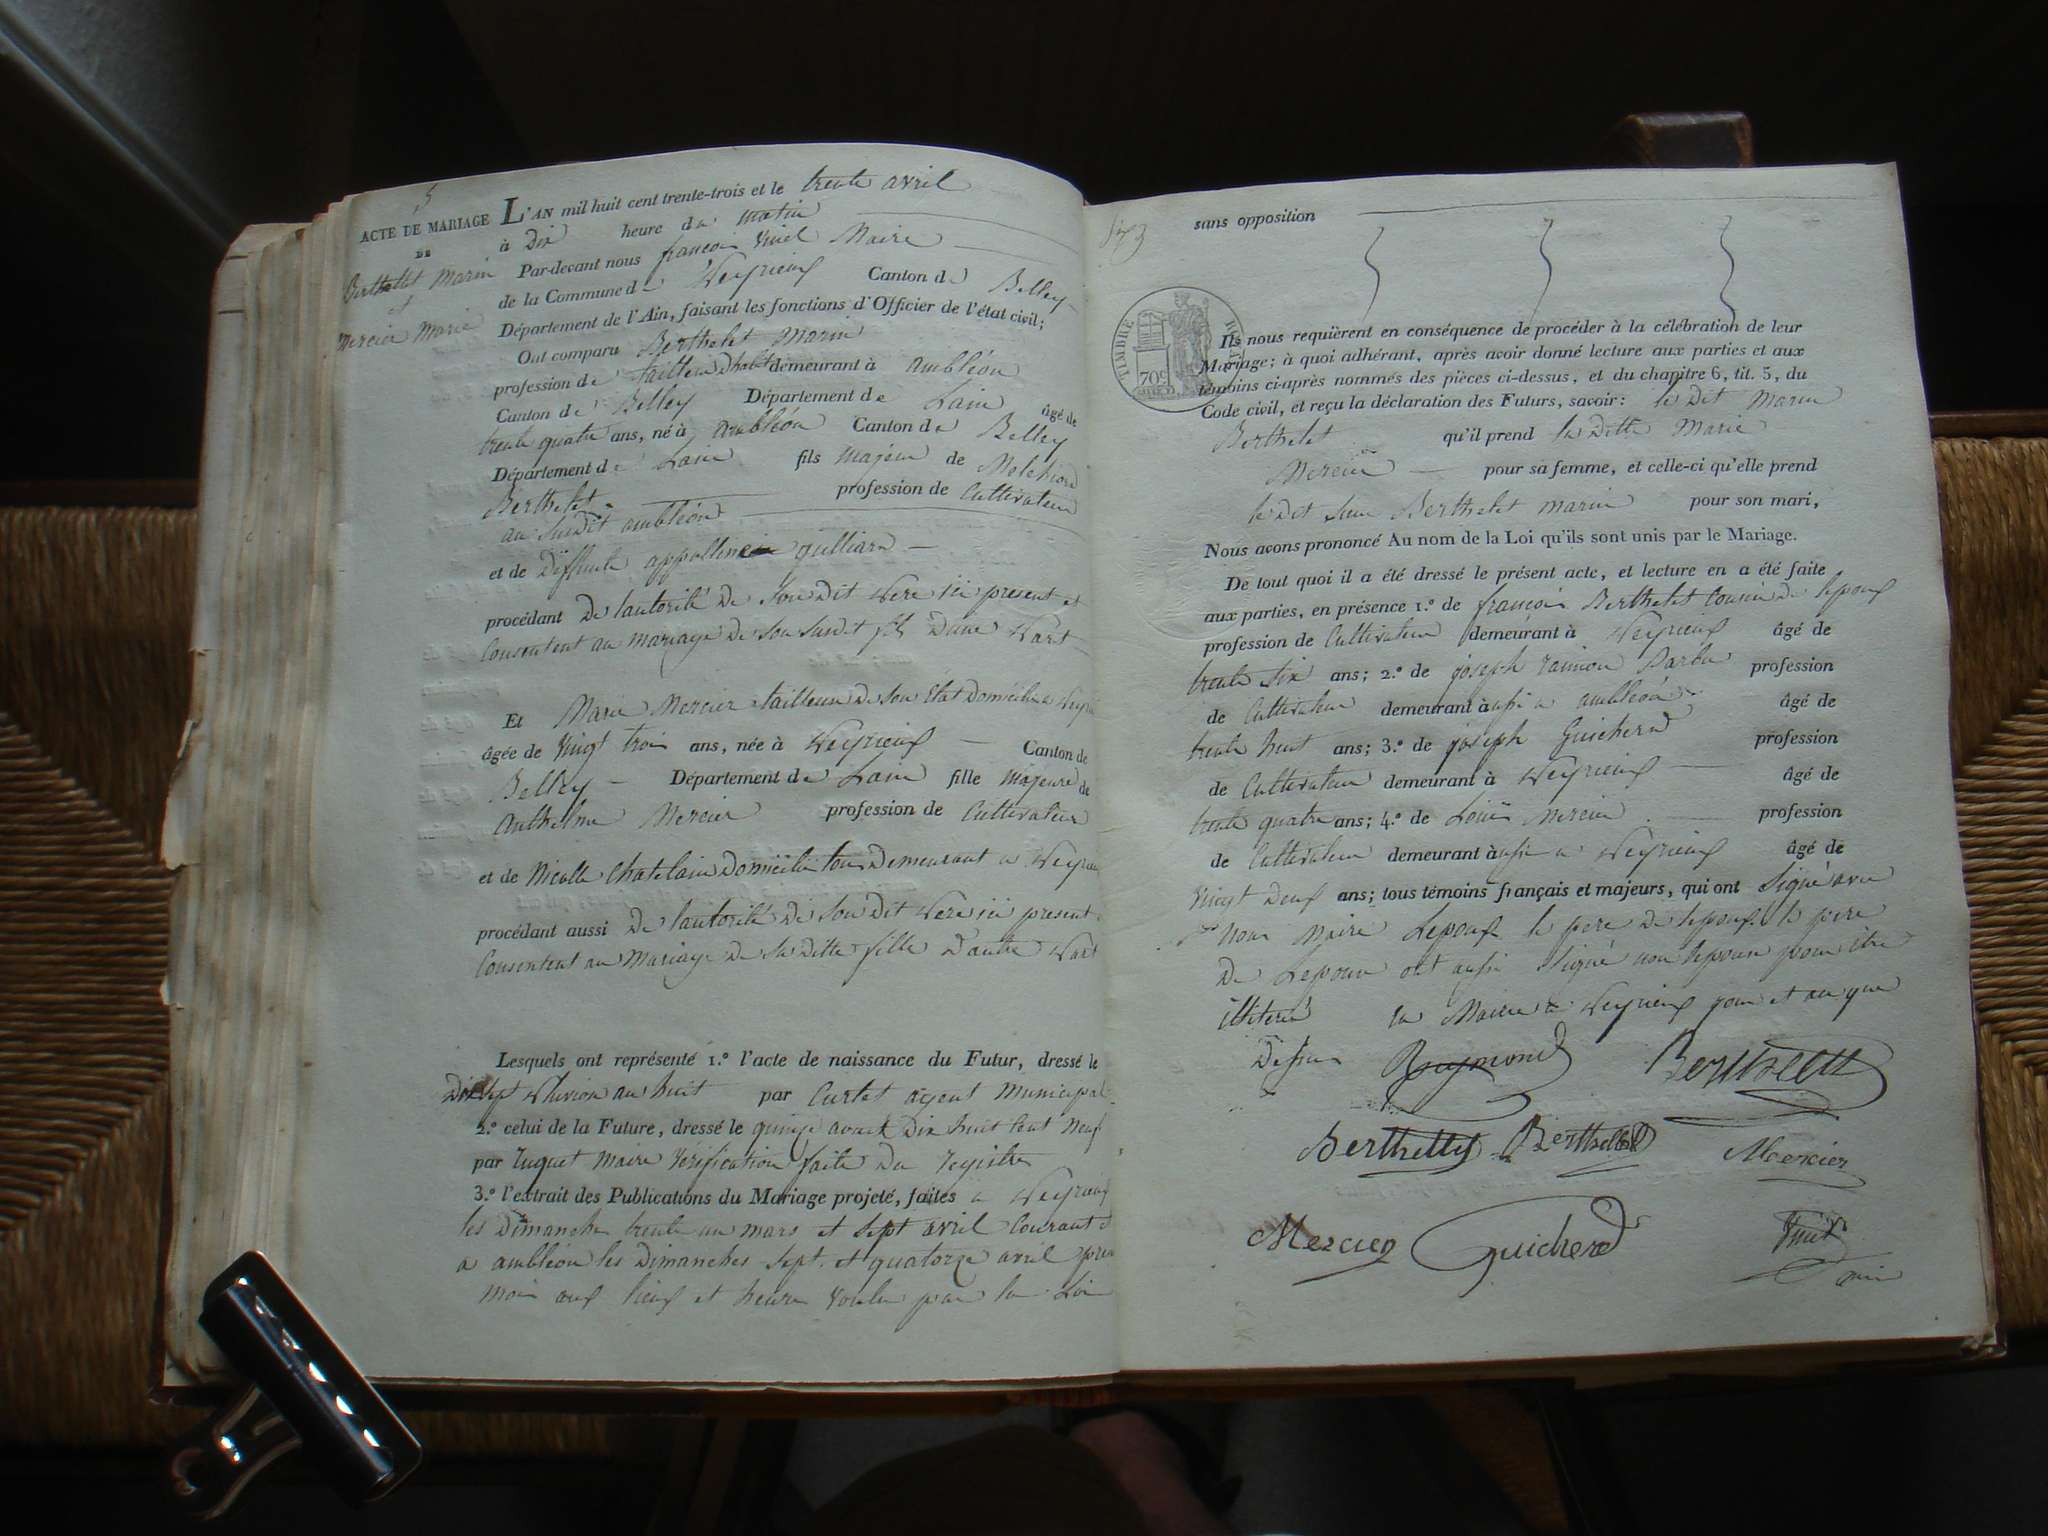 5
ACTE DE MARIAGE L'AN mil huit cent trente-trois et le trente avril
DE à Dix heure du matin
Berthelet Marin Par-devant nous françois Vuiel Maire
et de la Commune de Weyrieux Canton de Belley
Mercier Marie Département de l'Ain, faisant les fonctions d'Officier de l'état civil;
Ont comparu Berthelet Marin
profession de tailleur Dhabit demeurant à ambléon
Canton de Belley Département de Lain âgé de
trente quatre ans, né à ambléon Canton de Belley
Département de Lain fils majeur de Melchior
Berthelet profession de Cultivateur
au Susdit ambléon
et de Deffunte appolline gulliard
procédant De lautorité De Son Dit Pere ici present et
Consentent au mariage de Son Susdit fils Dune Part
Et Marie Mercier tailleuse De Son Etat Domicilié a
âgée de Vingt trois ans, née à Weyrieux Canton de
Belley Département de Lain fille majeure de
Anthelme Mercier profession de Cultivateur
et de Nicolle Chatelain Domicilié tous Demeurant a
procédant aussi De lautorité de Son Dit Pere ici present
Consentent au Mariage De Sa Ditte fille D'autre Part
Lesquels ont représenté 1.º l'acte de naissance du Futur, dressé le
Dix sept Pluviose an huit par Curtet agent Municipal
2.º celui de la Future, dressé le quinze avril Dix huit Cent Neuf
par Tuquet Maire Verification faite Du registre
3.º l'extrait des Publications du Mariage projeté, faites a Weyrieux
les Dimanche trente un mars et Sept avril Courant et
a ambléon les Dimanches Sept et quatorze avril
mois aux lieux et heure Voulu par la Loi
sans opposition
TIMBRE ROYAL
70c
Ils nous requièrent en conséquence de procéder à la célébration de leur
Mariage; à quoi adhérant, après avoir donné lecture aux parties et aux
témoins ci-après nommés des pièces ci-dessus, et du chapitre 6, tit. 5, du
Code civil, et reçu la déclaration des Futurs, savoir: le Dit Marin
Berthelet qu'il prend la Ditte Marie
Mercier pour sa femme, et celle-ci qu'elle prend
le Dit Berthelet marin pour son mari,
Nous avons prononcé Au nom de la Loi qu'ils sont unis par le Mariage.
De tout quoi il a été dressé le présent acte, et lecture en a été faite
aux parties, en présence 1.º de françois Berthelet Cousin de lepoux
profession de Cultivateur demeurant à Weyrieux âgé de
trente Six ans; 2.º de joseph raimon profession
de Cultivateur demeurant à aussi a ambléon âgé de
trente huit ans; 3.º de joseph Guicherd profession
de Cultivateur demeurant à Weyrieux âgé de
trente quatre ans; 4.º de Loüis Mercier profession
de Cultivateur demeurant à aussi a Weyrieux âgé de
Vingt Deux ans; tous témoins français et majeurs, qui ont Signé avec
Nous Maire Lepoux le pere de lepoux le pere
De Lepouse ont aussi Signé non lepouse pour être
illiteré en Mairie a Weyrieux jour et an que
Dessus Raymond Berthelet
Berthellet Berthellet Mercier
Mercier Guicherd Vuiel